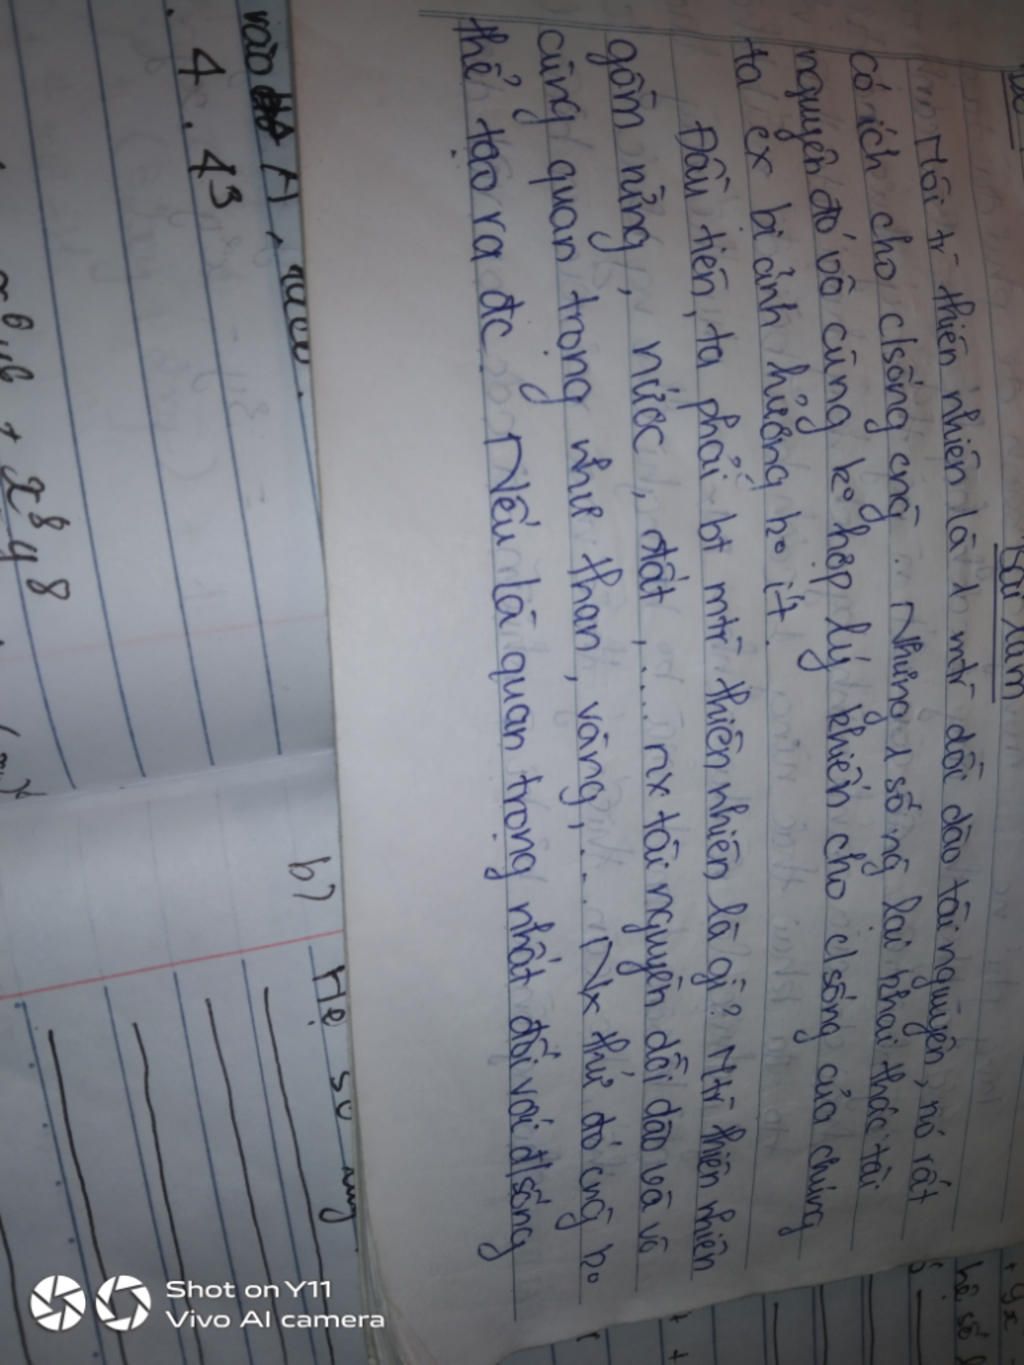 Bài làm
Môi tr thiên nhiên là 1 mtr dồi dào tài nguyên, nó rất
có ích cho c/sống cng. Nhưng 1 số ng lại khai thác tài
nguyên đó vô cùng ko hợp lý khiến cho c/sống của chúng
ta cx bị ảnh hưởng ko ít.
Đầu tiên, ta phải bt mtr thiên nhiên là gì? Mtr thiên nhiên
gồm rừng, nước, đất, ... nx tài nguyên dồi dào và vô
cùng quan trọng như than, vàng, ... Nx thứ đó cng ko
thể tạo ra đc. Nếu là quan trọng nhất đối với đ/sống
A
4. 4³
+ x⁸y⁸
b) Hệ số
hệ số
Shot on Y11
Vivo AI camera